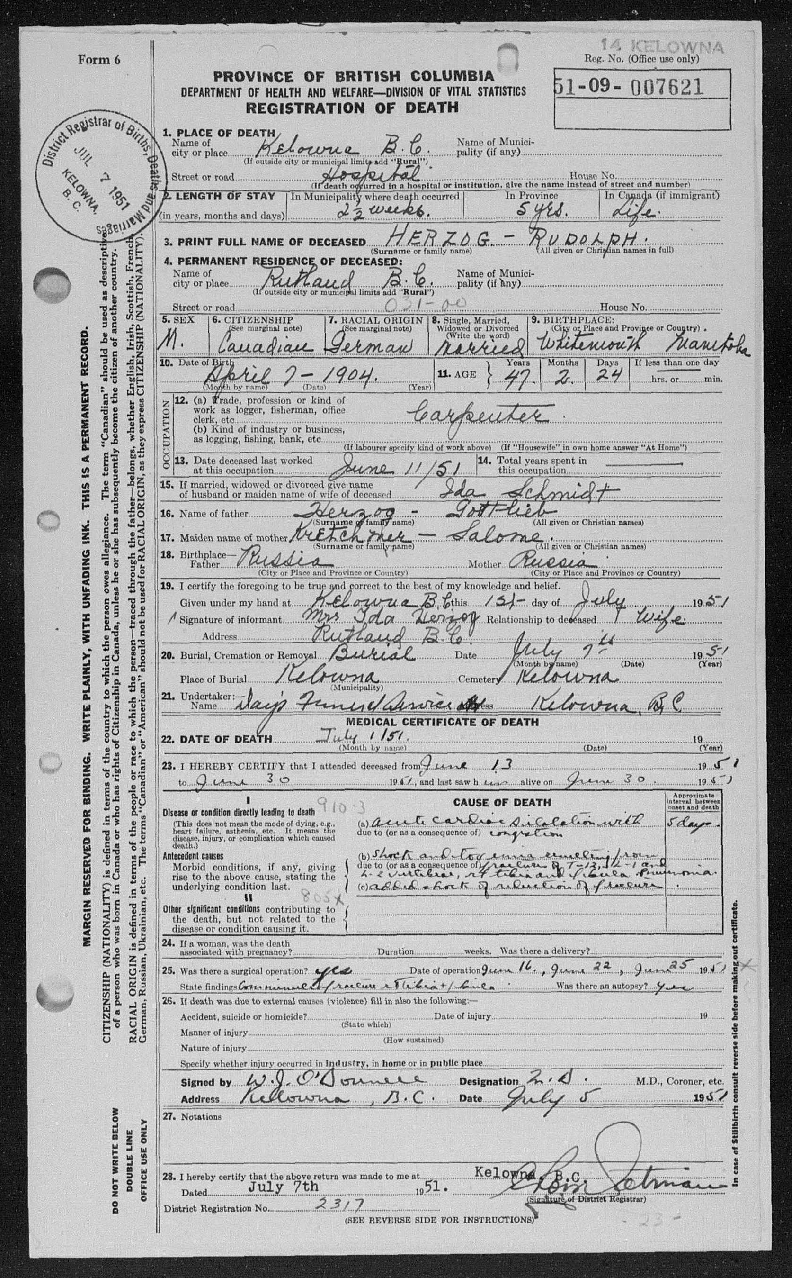 14 KELOWNA
Form 6
Reg. No. (Office use only)
PROVINCE OF BRITISH COLUMBIA
DEPARTMENT OF HEALTH AND WELFARE—DIVISION OF VITAL STATISTICS
REGISTRATION OF DEATH
51-09-007621
District Registrar of Births, Deaths and Marriages
JUL 7 1951
KELOWNA, B.C.
1. PLACE OF DEATH
Name of city or place Kelowna B.C. Name of Municipality (if any)
(If outside city or municipal limits add "Rural")
Street or road Hospital House No.
(If death occurred in a hospital or institution, give the name instead of street and number)
2. LENGTH OF STAY (in years, months and days) In Municipality where death occurred 2½ weeks. In Province 5 yrs. In Canada (if immigrant) Life.
3. PRINT FULL NAME OF DECEASED HERZOG - RUDOLPH.
(Surname or family name) (All given or Christian names in full)
4. PERMANENT RESIDENCE OF DECEASED:
Name of city or place Rutland B.C. Name of Municipality (if any)
(If outside city or municipal limits add "Rural")
Street or road 031-00 House No.
5. SEX M. 6. CITIZENSHIP (See marginal note) Canadian 7. RACIAL ORIGIN (See marginal note) German 8. Single, Married, Widowed or Divorced (Write the word) Married 9. BIRTHPLACE: (City or Place and Province or Country) Whitemouth Manitoba
10. Date of Birth April 7 - 1904. (Month by name) (Date) (Year) 11. AGE Years 47. Months 2. Days 24 If less than one day hrs. or min.
OCCUPATION
12. (a) Trade, profession or kind of work as logger, fisherman, office clerk, etc Carpenter.
(b) Kind of industry or business, as logging, fishing, bank, etc.
(If labourer specify kind of work above) (If "Housewife" in own home answer "At Home")
13. Date deceased last worked at this occupation June 11/51 14. Total years spent in this occupation
15. If married, widowed or divorced give name of husband or maiden name of wife of deceased Ida Schmidt
16. Name of father Herzog - Gottlieb
(Surname or family name) (All given or Christian names)
17. Maiden name of mother Kretchmer - Salome.
(Surname or family name) (All given or Christian names)
18. Birthplace— Father Russia Mother Russia
(City or Place and Province or Country) (City or Place and Province or Country)
19. I certify the foregoing to be true and correct to the best of my knowledge and belief.
Given under my hand at Kelowna B.C this 1st day of July 1951
Signature of informant Mrs Ida Herzog Relationship to deceased Wife
Address Rutland B.C
20. Burial, Cremation or Removal Burial Date July 7th 1951
(Month by name) (Date) (Year)
Place of Burial Kelowna Cemetery Kelowna
(Municipality)
21. Undertaker: Name Day's Funeral Service Address Kelowna, B.C
MEDICAL CERTIFICATE OF DEATH
22. DATE OF DEATH July 1/51. 19
(Month by name) (Date) (Year)
23. I HEREBY CERTIFY that I attended deceased from June 13 1951
to June 30 1951, and last saw him alive on June 30 1951
I 910-3
CAUSE OF DEATH
Approximate interval between onset and death
Disease or condition directly leading to death
(This does not mean the mode of dying, e.g., heart failure, asthenia, etc. It means the disease, injury, or complication which caused death.)
(a) acute cardiac dilatation with 5 days
due to (or as a consequence of) congestion
Antecedent causes
Morbid conditions, if any, giving rise to the above cause, stating the underlying condition last.
(b) Shock and toxemia resulting from
due to (or as a consequence of) fractures of T-12, L-1 and
L-2 vertebrae, rt tibia and fibula. Pneumonia.
(c) added shock of reduction of fracture
II 805x
Other significant conditions contributing to the death, but not related to the disease or condition causing it.
24. If a woman, was the death associated with pregnancy? Duration weeks. Was there a delivery?
25. Was there a surgical operation? yes Date of operation June 16, June 22, June 25 1951
State findings Comminuted fracture rt tibia + fibula. Was there an autopsy? yes
26. If death was due to external causes (violence) fill in also the following:—
Accident, suicide or homicide? Date of injury 19
(State which)
Manner of injury
(How sustained)
Nature of injury
Specify whether injury occurred in industry, in home or in public place
Signed by W.J. O'Donnell Designation M.D. M.D., Coroner, etc.
Address Kelowna, B.C. Date July 5 1951
27. Notations
28. I hereby certify that the above return was made to me at Kelowna, B.C.
Dated July 7th 1951.
(Signature of District Registrar)
District Registration No. 2317
(SEE REVERSE SIDE FOR INSTRUCTIONS)
MARGIN RESERVED FOR BINDING. WRITE PLAINLY, WITH UNFADING INK. THIS IS A PERMANENT RECORD.
CITIZENSHIP (NATIONALITY) is defined in terms of the country to which the person owes allegiance. The term "Canadian" should be used as descriptive of a person who was born in Canada or who has rights of Citizenship in Canada, unless he or she has subsequently become the citizen of another country.
RACIAL ORIGIN is defined in terms of the people or race to which the person—traced through the father—belongs, whether English, Irish, Scottish, French, German, Russian, Ukrainian, etc. The terms "Canadian" or "American" should not be used for RACIAL ORIGIN, as they express CITIZENSHIP (NATIONALITY).
DO NOT WRITE BELOW DOUBLE LINE
OFFICE USE ONLY
In case of Stillbirth consult reverse side before making out certificate.